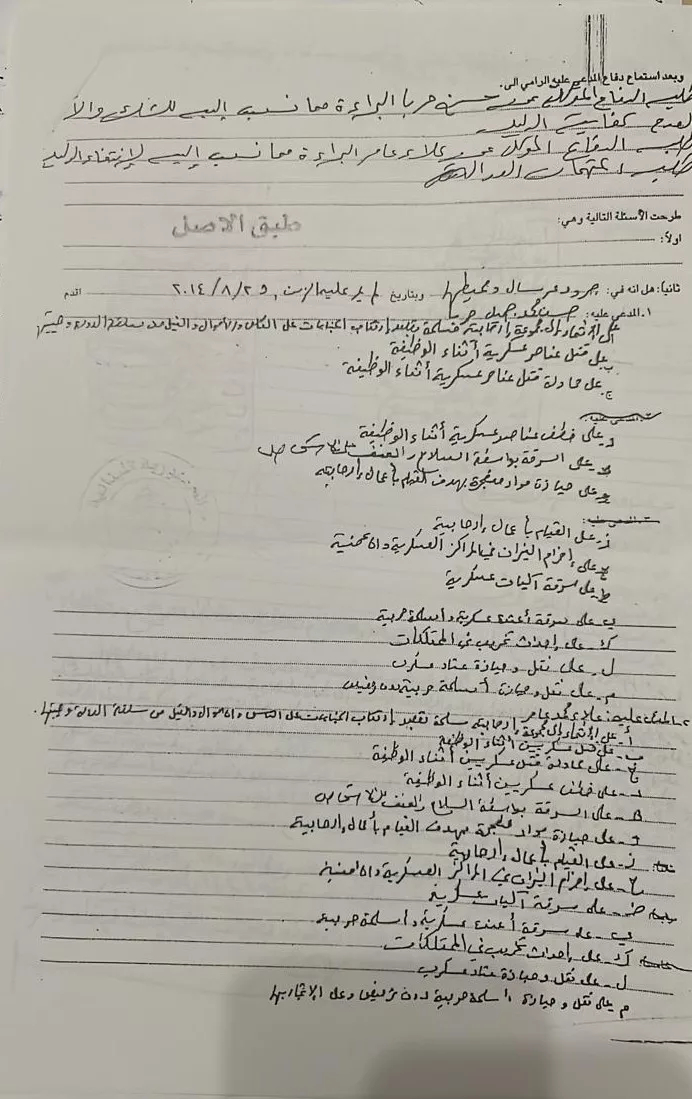 وبعد استماع دفاع المدعى عليه الرامي الى:
طلب الدفاع الموكل عن حسن حربا البراءة مما نسب إليه للشك والا
لعدم كفاية الدليل
طلب الدفاع الموكل عن علاء عامر البراءة مما نسب إليه لإنتفاء الدليل
العدالة
طرحت الأسئلة التالية وهي:
طبق الاصل
اولاً:
ثانيا: هل انه في: جرود عرسال ومحيطها وبتاريخ لم يمر عليه الزمن, ٢٩/٨/٢٠١٤ اقدم
١. المدعى عليه: حسن محمد جميل حربا
على الإنتماء إلى مجموعة إرهابية مسلحة بقصد إرتكاب الجنايات على الناس والأموال والنيل من سلطة الدولة وهيبتها
ب على قتل عناصر عسكرية أثناء الوظيفة
ج على محاولة قتل عناصر عسكرية أثناء الوظيفة
د على خطف عناصر عسكرية أثناء الوظيفة
هـ على السرقة بواسطة السلاح والعنف على الأشخاص
و على حيازة مواد متفجرة بهدف القيام بأعمال إرهابية
ز على القيام بأعمال إرهابية
ح على إضرام النيران في المراكز العسكرية والأمنية
ط على سرقة آليات عسكرية
ي على سرقة أعتدة عسكرية وأسلحة حربية
ك على إحداث تخريب في الممتلكات
ل على نقل وحيازة عتاد عسكري
م على نقل وحيازة أسلحة حربية بدون ترخيص
٢- المدعى عليه: علاء محمد عامر
أ- على الإنتماء إلى مجموعة إرهابية مسلحة بقصد إرتكاب الجنايات على الناس والأموال والنيل من سلطة الدولة وهيبتها.
ب- على قتل عسكريين أثناء الوظيفة
ج- على محاولة قتل عسكريين أثناء الوظيفة
د- على خطف عسكريين أثناء الوظيفة
هـ- على السرقة بواسطة السلاح والعنف على الأشخاص
و- على حيازة مواد متفجرة بهدف القيام بأعمال إرهابية
ز- على القيام بأعمال إرهابية
ح- على إضرام النيران في المراكز العسكرية والأمنية
ط- على سرقة آليات عسكرية
ي- على سرقة أعتدة عسكرية وأسلحة حربية
ك- على إحداث تخريب في الممتلكات
ل- على نقل وحيازة عتاد عسكري
م على نقل وحيازة أسلحة حربية بدون ترخيص وعلى الإتجار بها